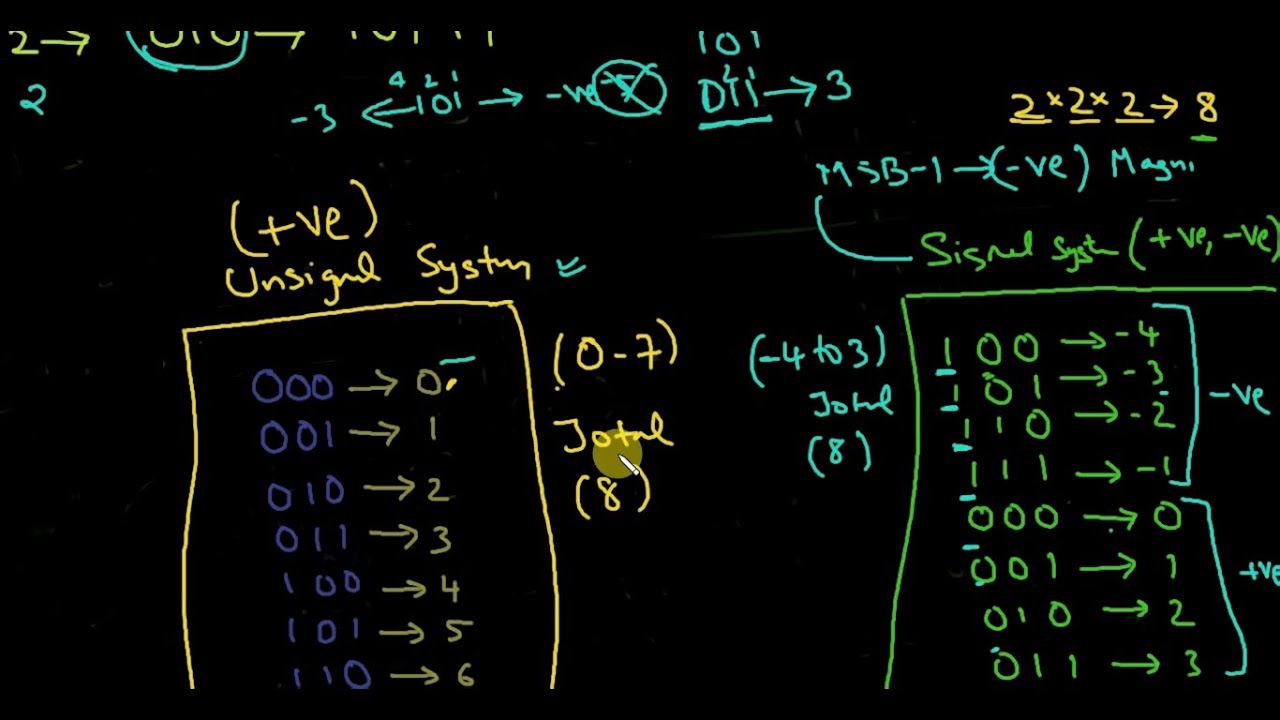 2 → 010 →
101
2
4 2 1
-3 ← 101 → -ve
2 1
011 → 3
2 × 2 × 2 → 8
MSB-1 → (-ve) Magni
(+ve)
Unsignd System
Signd System (+ve, -ve)
000 → 0
001 → 1
010 → 2
011 → 3
100 → 4
101 → 5
110 → 6
(0-7)
Total
(8)
(-4 to 3)
Total
(8)
100 → -4
101 → -3
110 → -2
111 → -1
-ve
000 → 0
001 → 1
010 → 2
011 → 3
+ve